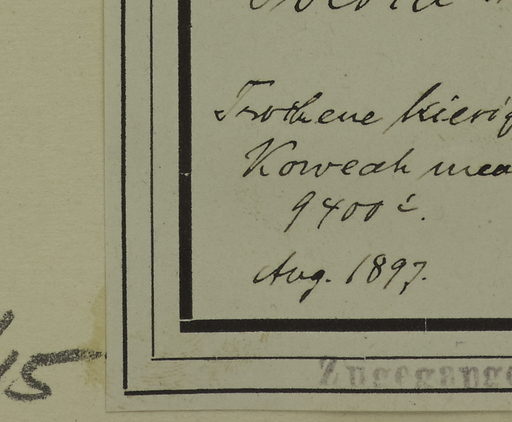 Trockene kiesig
Koweah mea
9400'.
Aug. 1897.
Zugegange
15